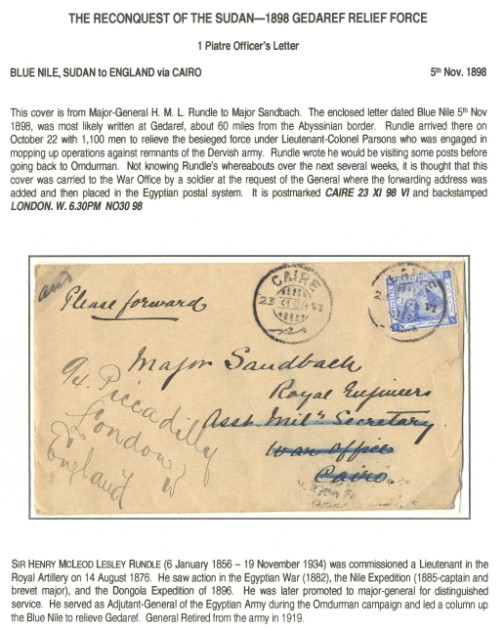 THE RECONQUEST OF THE SUDAN—1898 GEDAREF RELIEF FORCE
1 Piatre Officer's Letter
BLUE NILE, SUDAN to ENGLAND via CAIRO 5th Nov. 1898
This cover is from Major-General H. M. L. Rundle to Major Sandbach. The enclosed letter dated Blue Nile 5th Nov
1898, was most likely written at Gedaref, about 60 miles from the Abyssinian border. Rundle arrived there on
October 22 with 1,100 men to relieve the besieged force under Lieutenant-Colonel Parsons who was engaged in
mopping up operations against remnants of the Dervish army. Rundle wrote he would be visiting some posts before
going back to Omdurman. Not knowing Rundle's whereabouts over the next several weeks, it is thought that this
cover was carried to the War Office by a soldier at the request of the General where the forwarding address was
added and then placed in the Egyptian postal system. It is postmarked CAIRE 23 XI 98 VI and backstamped
LONDON. W. 6.30PM NO30 98
and
Please forward
CAIRE
23 XI 98 VI
Major Sandbach
Royal Engineers
Asst Mily Secretary
War Office
Cairo
94 Piccadilly
London W
England
SIR HENRY MCLEOD LESLEY RUNDLE (6 January 1856 – 19 November 1934) was commissioned a Lieutenant in the
Royal Artillery on 14 August 1876. He saw action in the Egyptian War (1882), the Nile Expedition (1885-captain and
brevet major), and the Dongola Expedition of 1896. He was later promoted to major-general for distinguished
service. He served as Adjutant-General of the Egyptian Army during the Omdurman campaign and led a column up
the Blue Nile to relieve Gedaref. General Retired from the army in 1919.